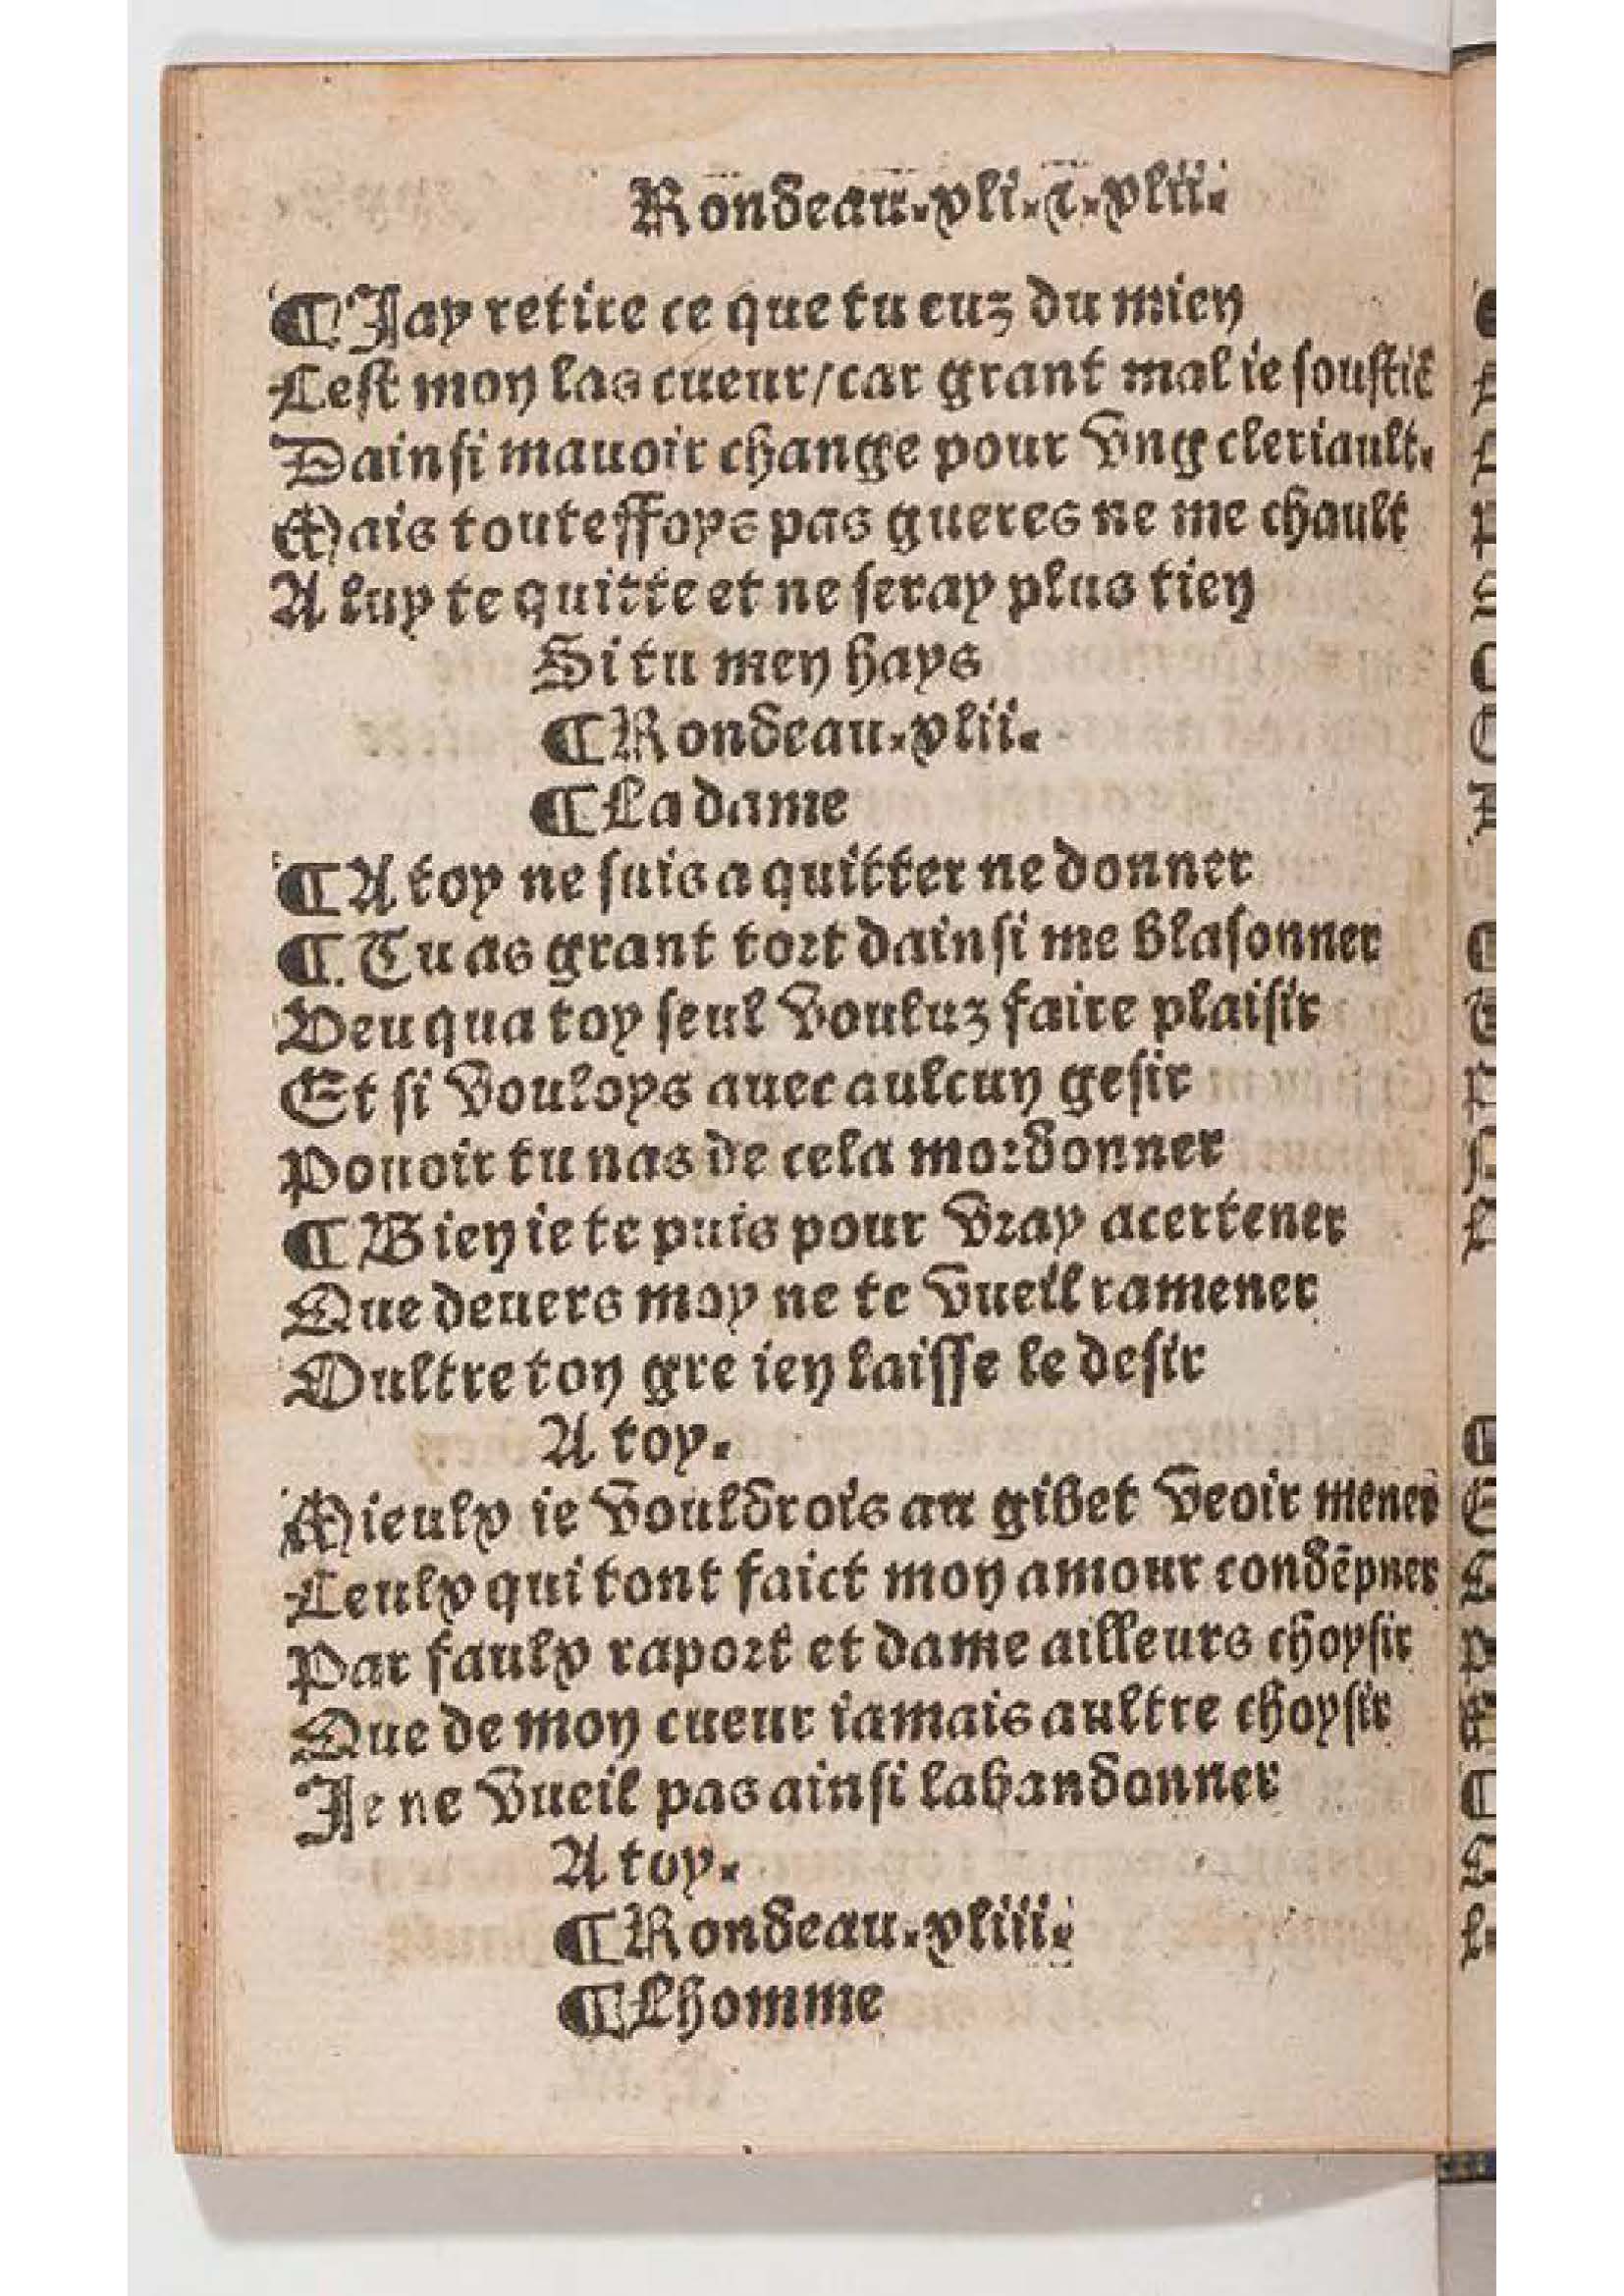 Rondeau.xli.⁊.xlii.
¶ Jay retire ce que tu euz du mien
Cest mon las cueur/car grant mal ie soustiē
Dainsi mauoir change pour vng cleriault.
Mais touteffoys pas gueres ne me chault
A luy te quitte et ne seray plus tien
Si tu men hays
¶ Rondeau.xlii.
¶ La dame
¶ A toy ne suis a quitter ne donner
¶ Tu as grant tort dainsi me blasonner
Veu qua toy seul vouluz faire plaisir
Et si vouloys auec aulcun gesir
Pouoir tu nas de cela mordonner
¶ Bien ie te puis pour vray acertener
Que deuers moy ne te vueil ramener
Oultre ton gre ien laisse le desir
A toy.
Mieulx ie vouldrois au gibet veoir mener
Ceulx qui tont faict mon amour condēpner
Par faulx raport et dame ailleurs choysir
Que de mon cueur iamais aultre choysir
Je ne vueil pas ainsi labandonner
A toy.
¶ Rondeau.xliii.
¶ Lhomme